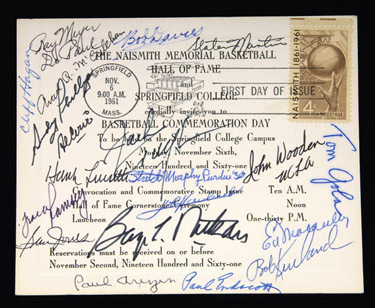 Ray Meyer
Bob Davies
Slater Martin
THE NAISMITH MEMORIAL BASKETBALL
HALL OF FAME
and
SPRINGFIELD COLLEGE
cordially invite you to
BASKETBALL COMMEMORATION DAY
SPRINGFIELD
NOV 6
9:00 AM
1961
MASS.
FIRST DAY OF ISSUE
NAISMITH 1861·1961
4¢
Cliff Hagan
Andy Phillip
To be held on the Springfield College Campus
Monday, November Sixth,
Nineteenth Hundred and Sixty-one
Stretch Murphy Purdue '30
John Wooden
UCLA
Tom Gola
Convocation and Commemorative Stamp Issue Ten A.M.
Hall of Fame Cornerstone Ceremony Noon
Luncheon One-thirty P.M.
Sam Jones
Ed Macauley
Bob Kurland
Reservations must be received on or before
November Second, Nineteen Hundred and Sixty-one
Paul Arizin
Paul Endacott